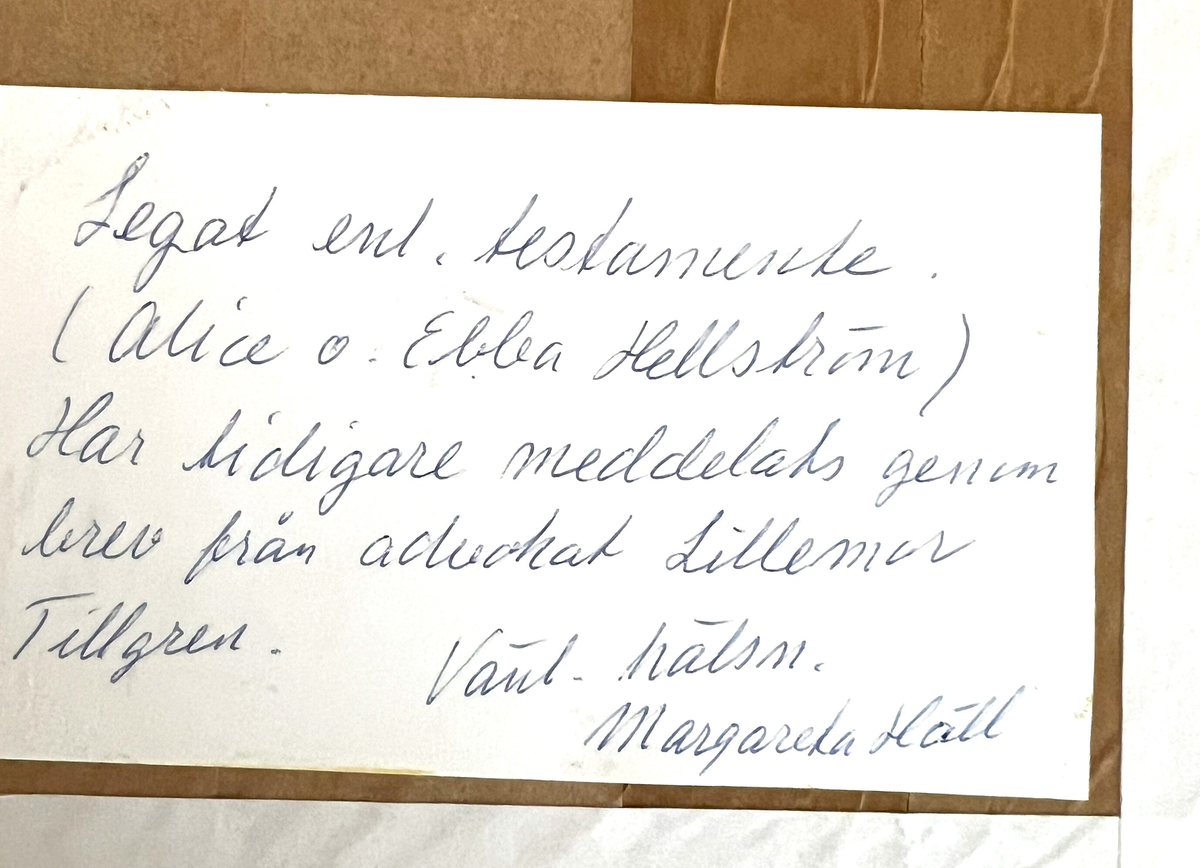 Legat enl. testamente.
(Alice o. Ebba Hellström)
Har tidigare meddelats genom
brev från advokat Lillemor
Tillgren.
Vänl. hälsn.
Margareta Häll